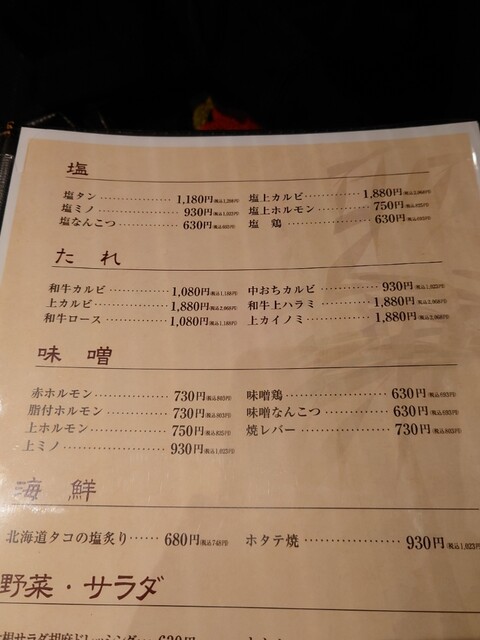 塩
塩タン 1,180円(税込1,298円)
塩ミノ 930円(税込1,023円)
塩なんこつ 630円(税込693円)
塩上カルビ 1,880円(税込2,068円)
塩上ホルモン 750円(税込825円)
塩 鶏 630円(税込693円)
たれ
和牛カルビ 1,080円(税込1,188円)
上カルビ 1,880円(税込2,068円)
和牛ロース 1,080円(税込1,188円)
中おちカルビ 930円(税込1,023円)
和牛上ハラミ 1,880円(税込2,068円)
上カイノミ 1,880円(税込2,068円)
味噌
赤ホルモン 730円(税込803円)
脂付ホルモン 730円(税込803円)
上ホルモン 750円(税込825円)
上ミノ 930円(税込1,023円)
味噌鶏 630円(税込693円)
味噌なんこつ 630円(税込693円)
焼レバー 730円(税込803円)
海鮮
北海道タコの塩炙り 680円(税込748円)
ホタテ焼 930円(税込1,023円)
野菜・サラダ